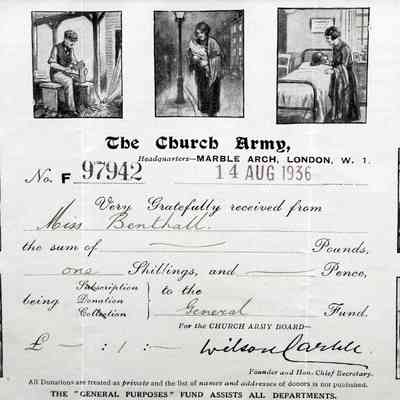 The Church Army,
Headquarters—MARBLE ARCH, LONDON, W. 1.
No. F 97942 14 AUG 1936
Very Gratefully received from
Miss Benthall.
the sum of — Pounds,
one Shillings, and — Pence,
being Subscription Donation Collection } to the General Fund.
For the CHURCH ARMY BOARD—
£ - : 1 : - Wilson Carlile.
Founder and Hon. Chief Secretary.
All Donations are treated as private and the list of names and addresses of donors is not published.
THE "GENERAL PURPOSES" FUND ASSISTS ALL DEPARTMENTS.